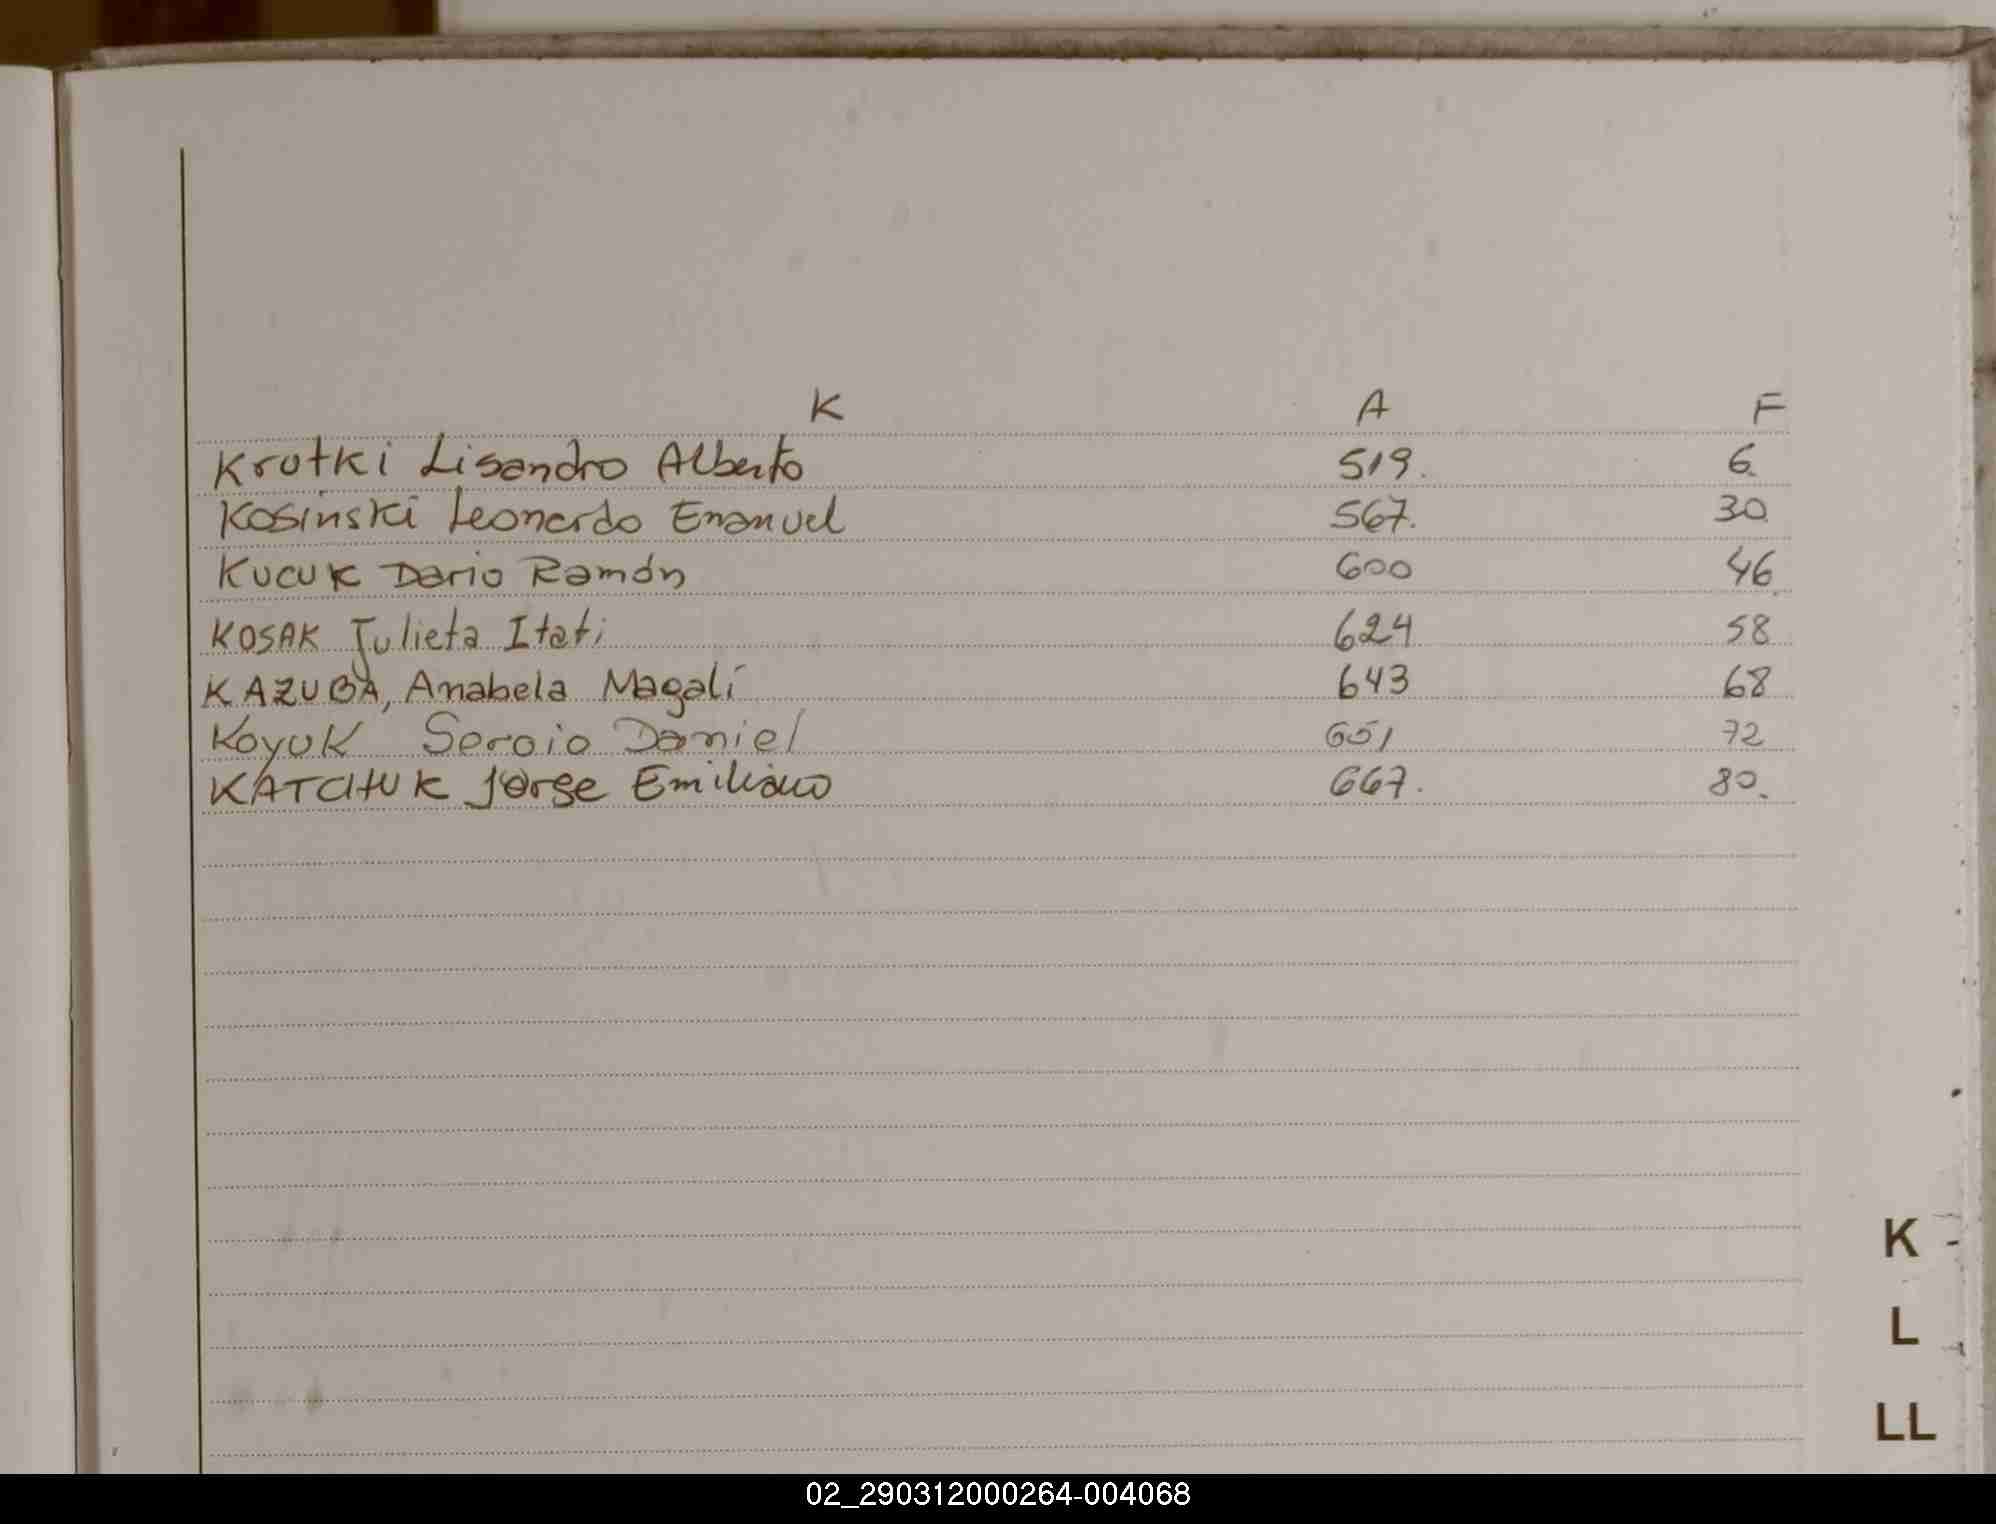 K A F
Krutki Lisandro Alberto 519. 6.
Kosinski Leonardo Emanuel 567. 30.
Kucuk Dario Ramón 600 46.
KOSAK Julieta Itati 624 58
KAZUBA, Anabela Magalí 643 68
Koyuk Sergio Daniel 651 72
KATCHUK Jorge Emiliano 667. 80.
K
L
LL
02_290312000264-004068